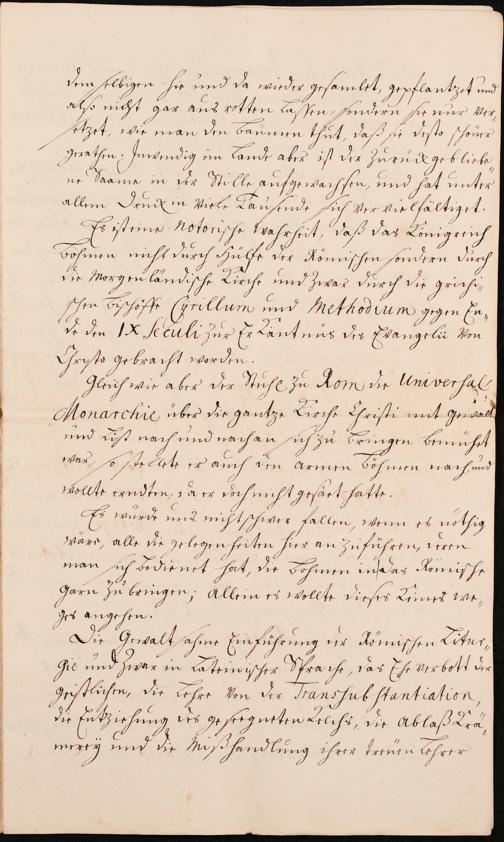 demselbigen hie und da wieder gesamlet, gepflantzet und
also nicht gar ausrotten lassen, sondern sie nur ver,
setzet, wie man den Bäumen thut, daß sie desto schöner
gerathen. Inwendig im Lande aber ist der zurückgebliebe,
ne Saame in der Stille aufgewachsen, und hat unter
allem Druck in viele Tausende sich vervielfältiget.
Es ist eine notorische Wahrheit, daß das Königreich
Böhmen nicht durch Hülfe der Römischen sondern durch
die Morgenländische Kirche und zwar durch die grichi-
schen Bischöffe Cyrillum und Methodium gegen En,
de den IX Seculi zur Erkäntnüs des Evangelii von
Christo gebracht worden.
Gleich wie aber der Stuhl zu Rom die Universal
Monarchie über die gantze Kirche Christi mit Gewalt
und List nach und nach an sich zu bringen bemühet
war, so stellete er auch den armen Böhmen nach und
wollte erndten, da er doch nicht gesäet hatte.
Es würde uns nicht schwer fallen, wenn es nöthig
wäre, alle die gelegenheiten hier anzuführen, deren
man sich bedienet hat, die Böhmen in das Römische
Garn zu bringen; allein es wollte dieses keines we,
ges angehen.
Die Gewaltsahme Einführung der Römischen Litur,
gie und zwar in Lateinischer Sprache, das Eheverbott der
geistlichen, die Lehre von der Transsubstantiation,
die Entziehung des gesegneten Kelchs, die Ablaß Krä,
merey und die Mißhandlung ihrer treuen Lehrer